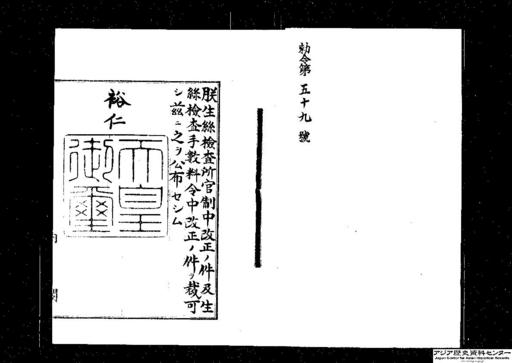 勅令第五十九號
朕生絲檢査所官制中改正ノ件及生
絲檢査手數料令中改正ノ件ヲ裁可
シ茲ニ之ヲ公布セシム
裕仁
天皇
御璽
内閣
アジア歴史資料センター
Japan Center for Asian Historical Records